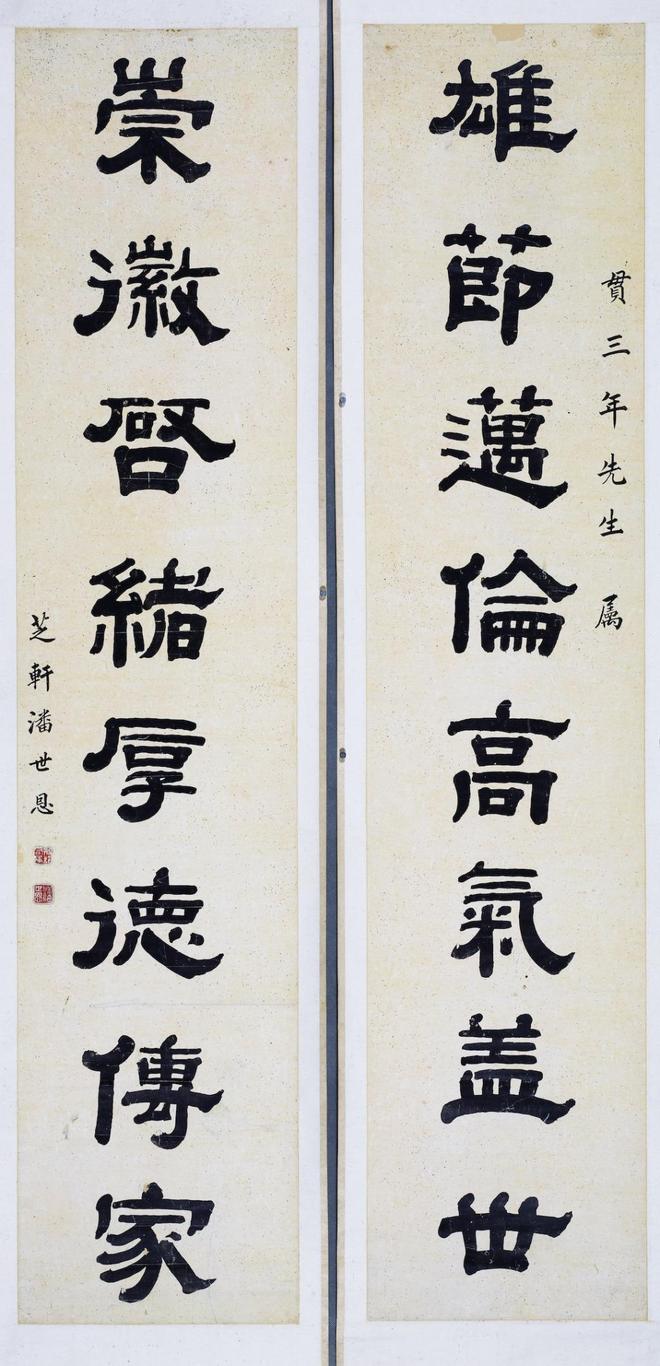 貫三年先生 属
雄節邁倫高氣盖世
崇徽啓緒厚德傳家
芝軒潘世恩